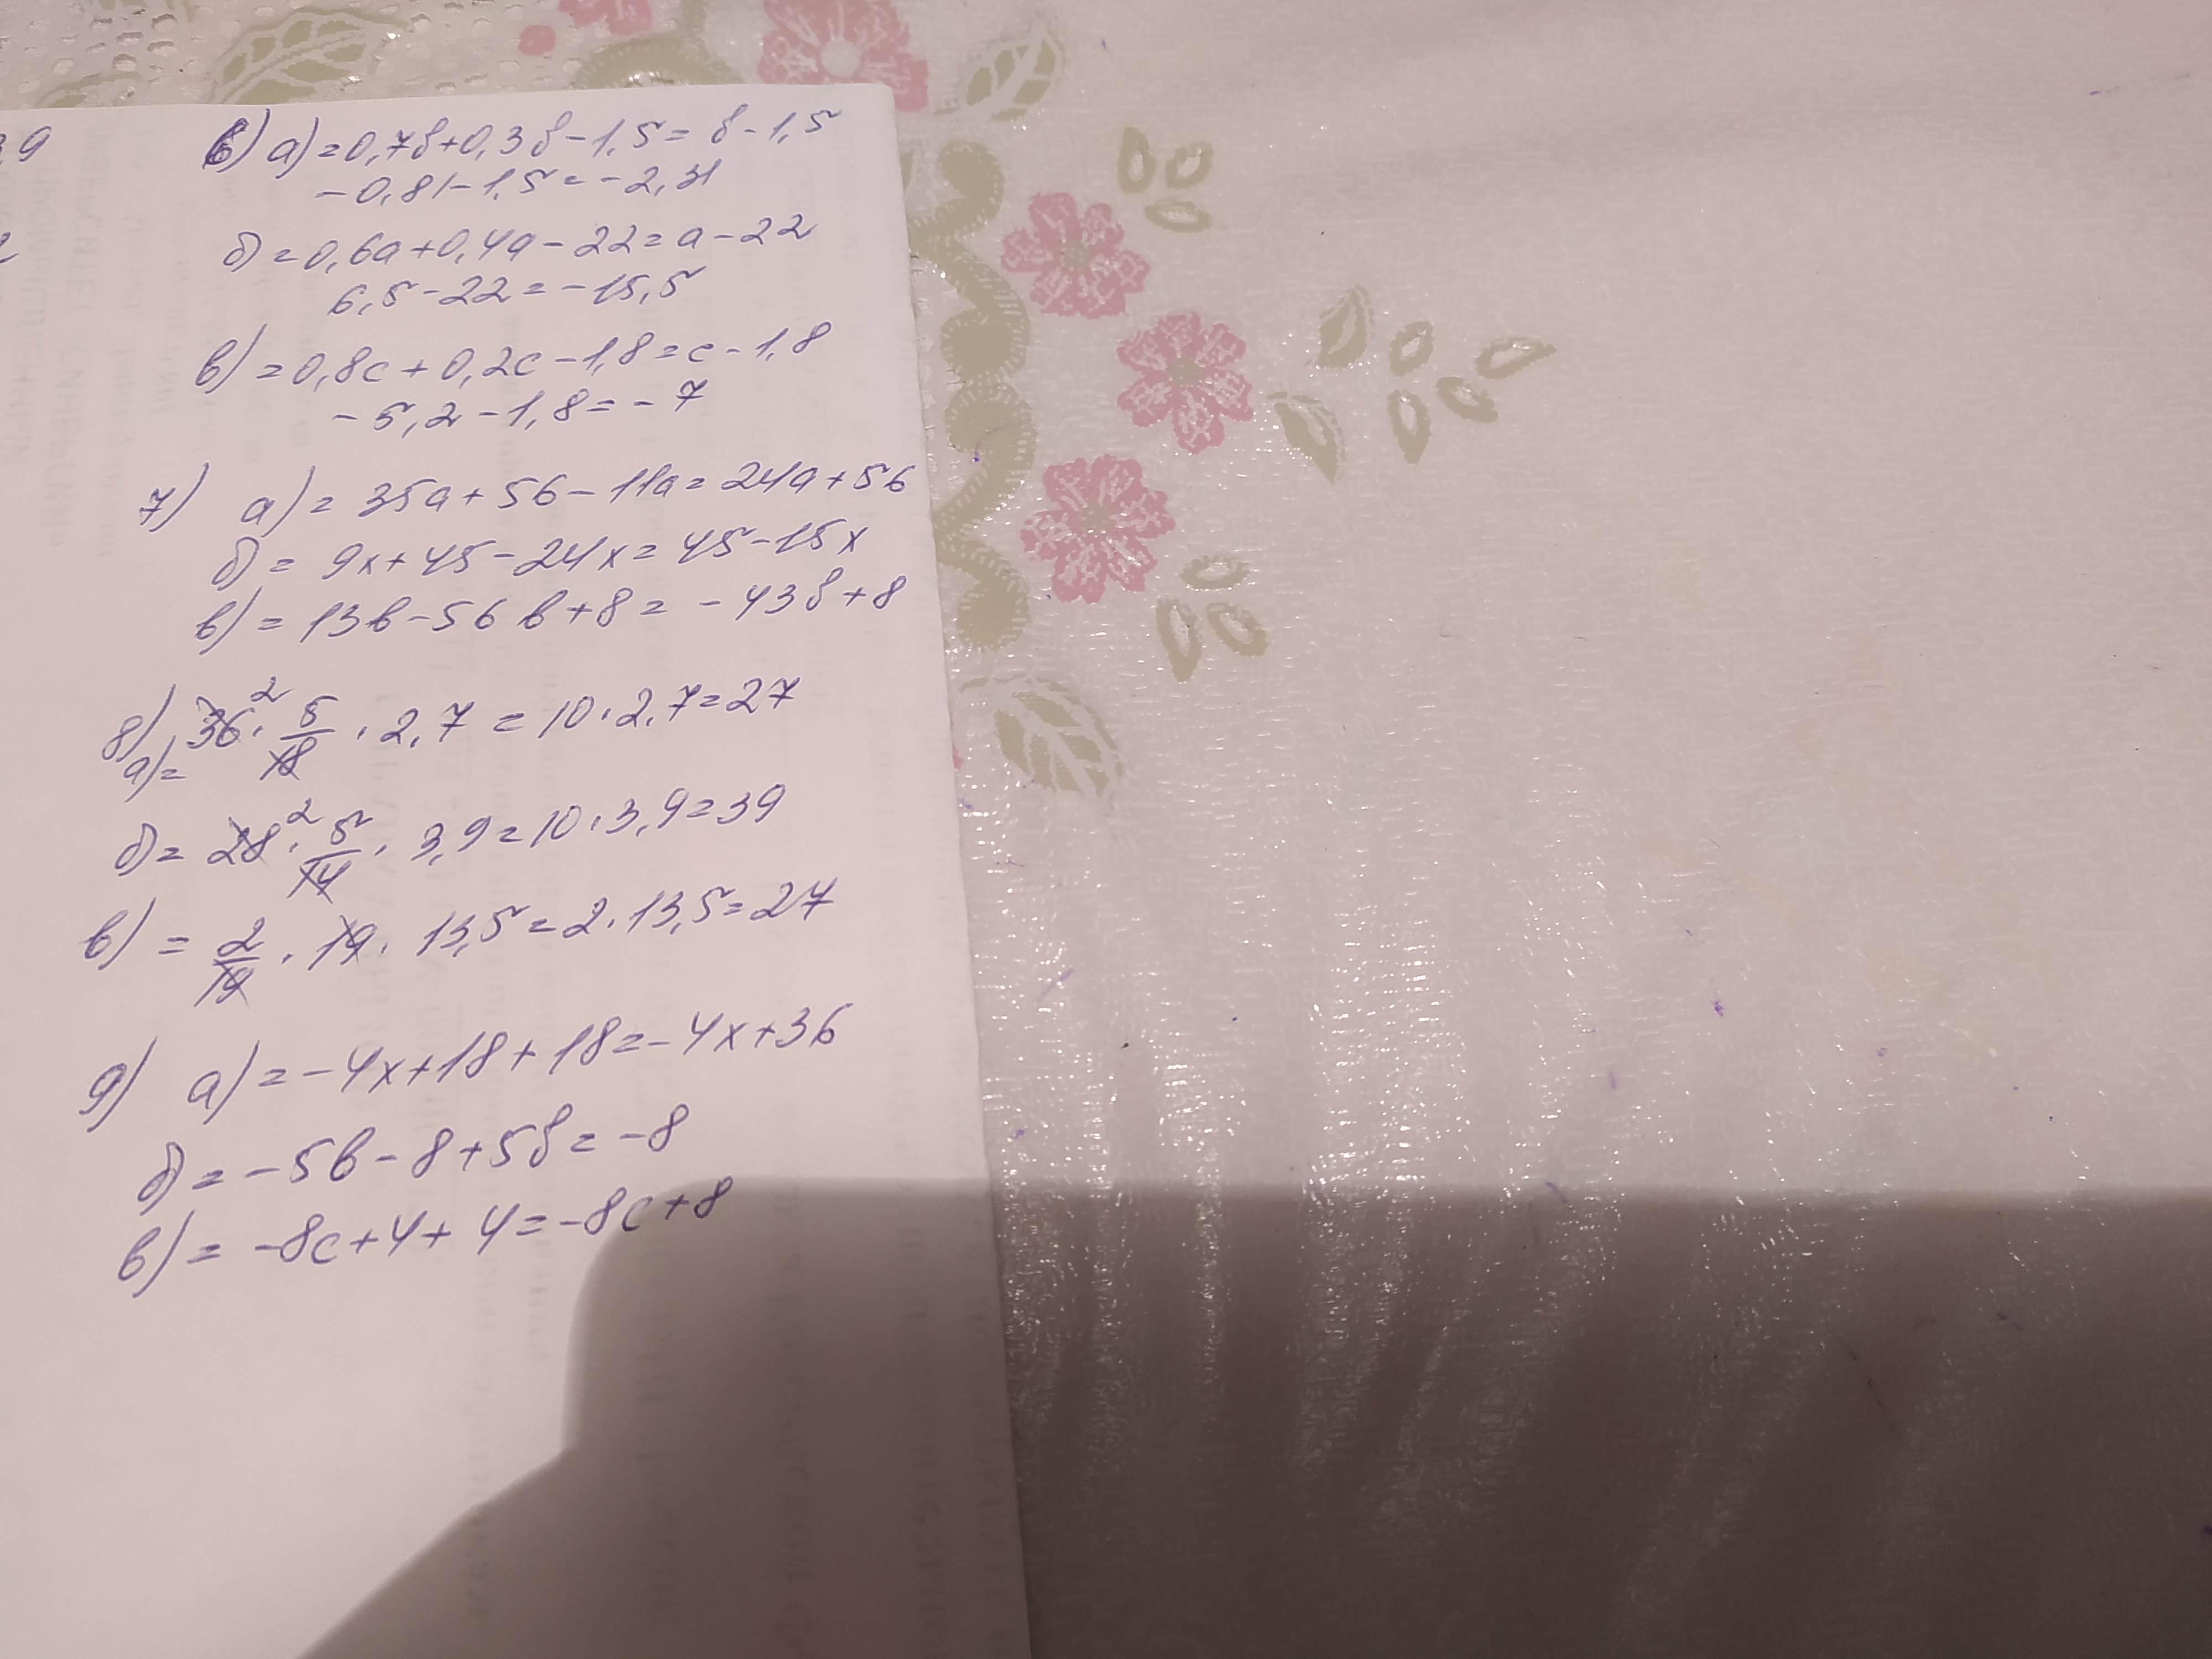 ,9
6) а) = 0,7b+0,3b-1,5= b-1,5
-0,81-1,5=-2,31
б) = 0,6a+0,4a-22=a-22
6,5-22=-15,5
в) =0,8c+0,2c-1,8=c-1,8
-5,2-1,8=-7
7) а) = 35a+56-11a=24a+56
б) = 9x+45-24x=45-15x
в) = 13b-56b+8= -43b+8
8) 36² · 5/18 · 2,7 = 10·2,7=27
а) =
б) = 28² · 5/14 · 3,9=10·3,9=39
в) = 2/19 · 19 · 13,5=2·13,5=27
9) а) =-4x+18+18=-4x+36
б) =-5b-8+5b=-8
в) = -8c+4+4=-8c+8